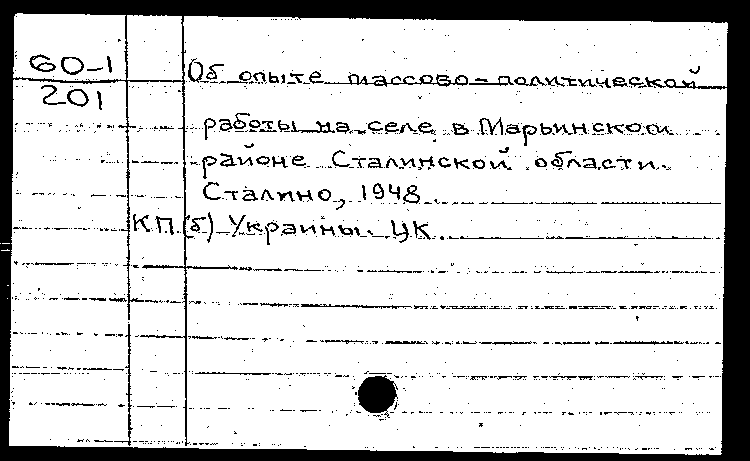 60-1
201
Об опыте массово-политической
работы на селе в Марьинском
районе Сталинской области.
Сталино, 1948.
КП(б) Украины. ЦК.